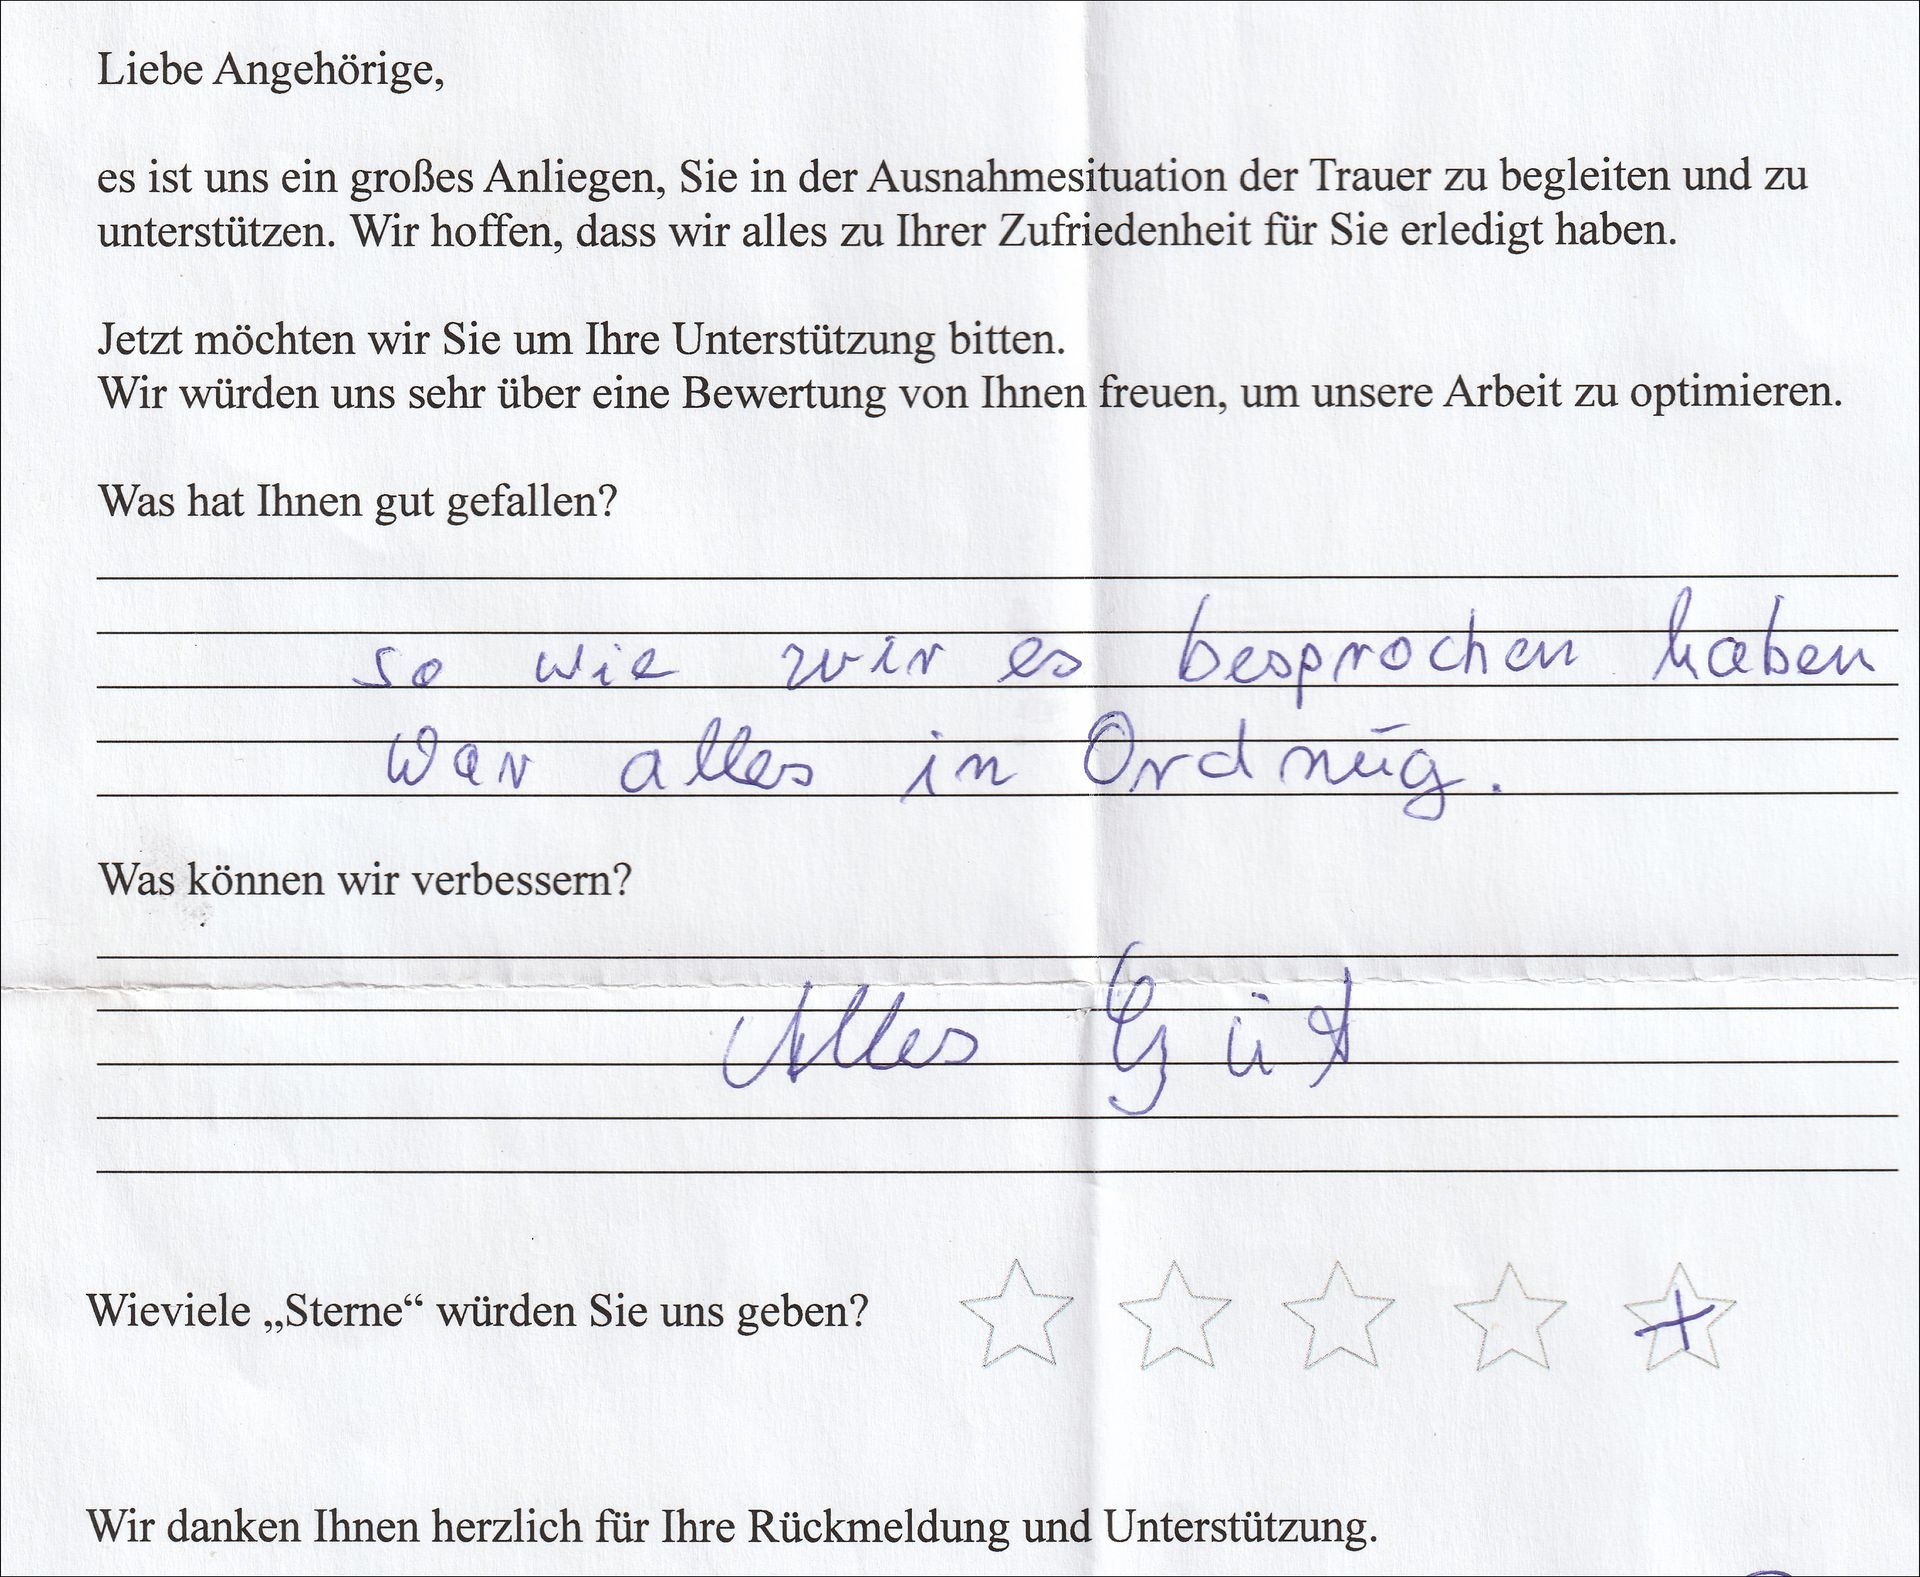 Liebe Angehörige,
es ist uns ein großes Anliegen, Sie in der Ausnahmesituation der Trauer zu begleiten und zu
unterstützen. Wir hoffen, dass wir alles zu Ihrer Zufriedenheit für Sie erledigt haben.
Jetzt möchten wir Sie um Ihre Unterstützung bitten.
Wir würden uns sehr über eine Bewertung von Ihnen freuen, um unsere Arbeit zu optimieren.
Was hat Ihnen gut gefallen?
so wie wir es besprochen haben
war alles in Ordnūg.
Was können wir verbessern?
Alles Gut
Wieviele „Sterne“ würden Sie uns geben?
Wir danken Ihnen herzlich für Ihre Rückmeldung und Unterstützung.